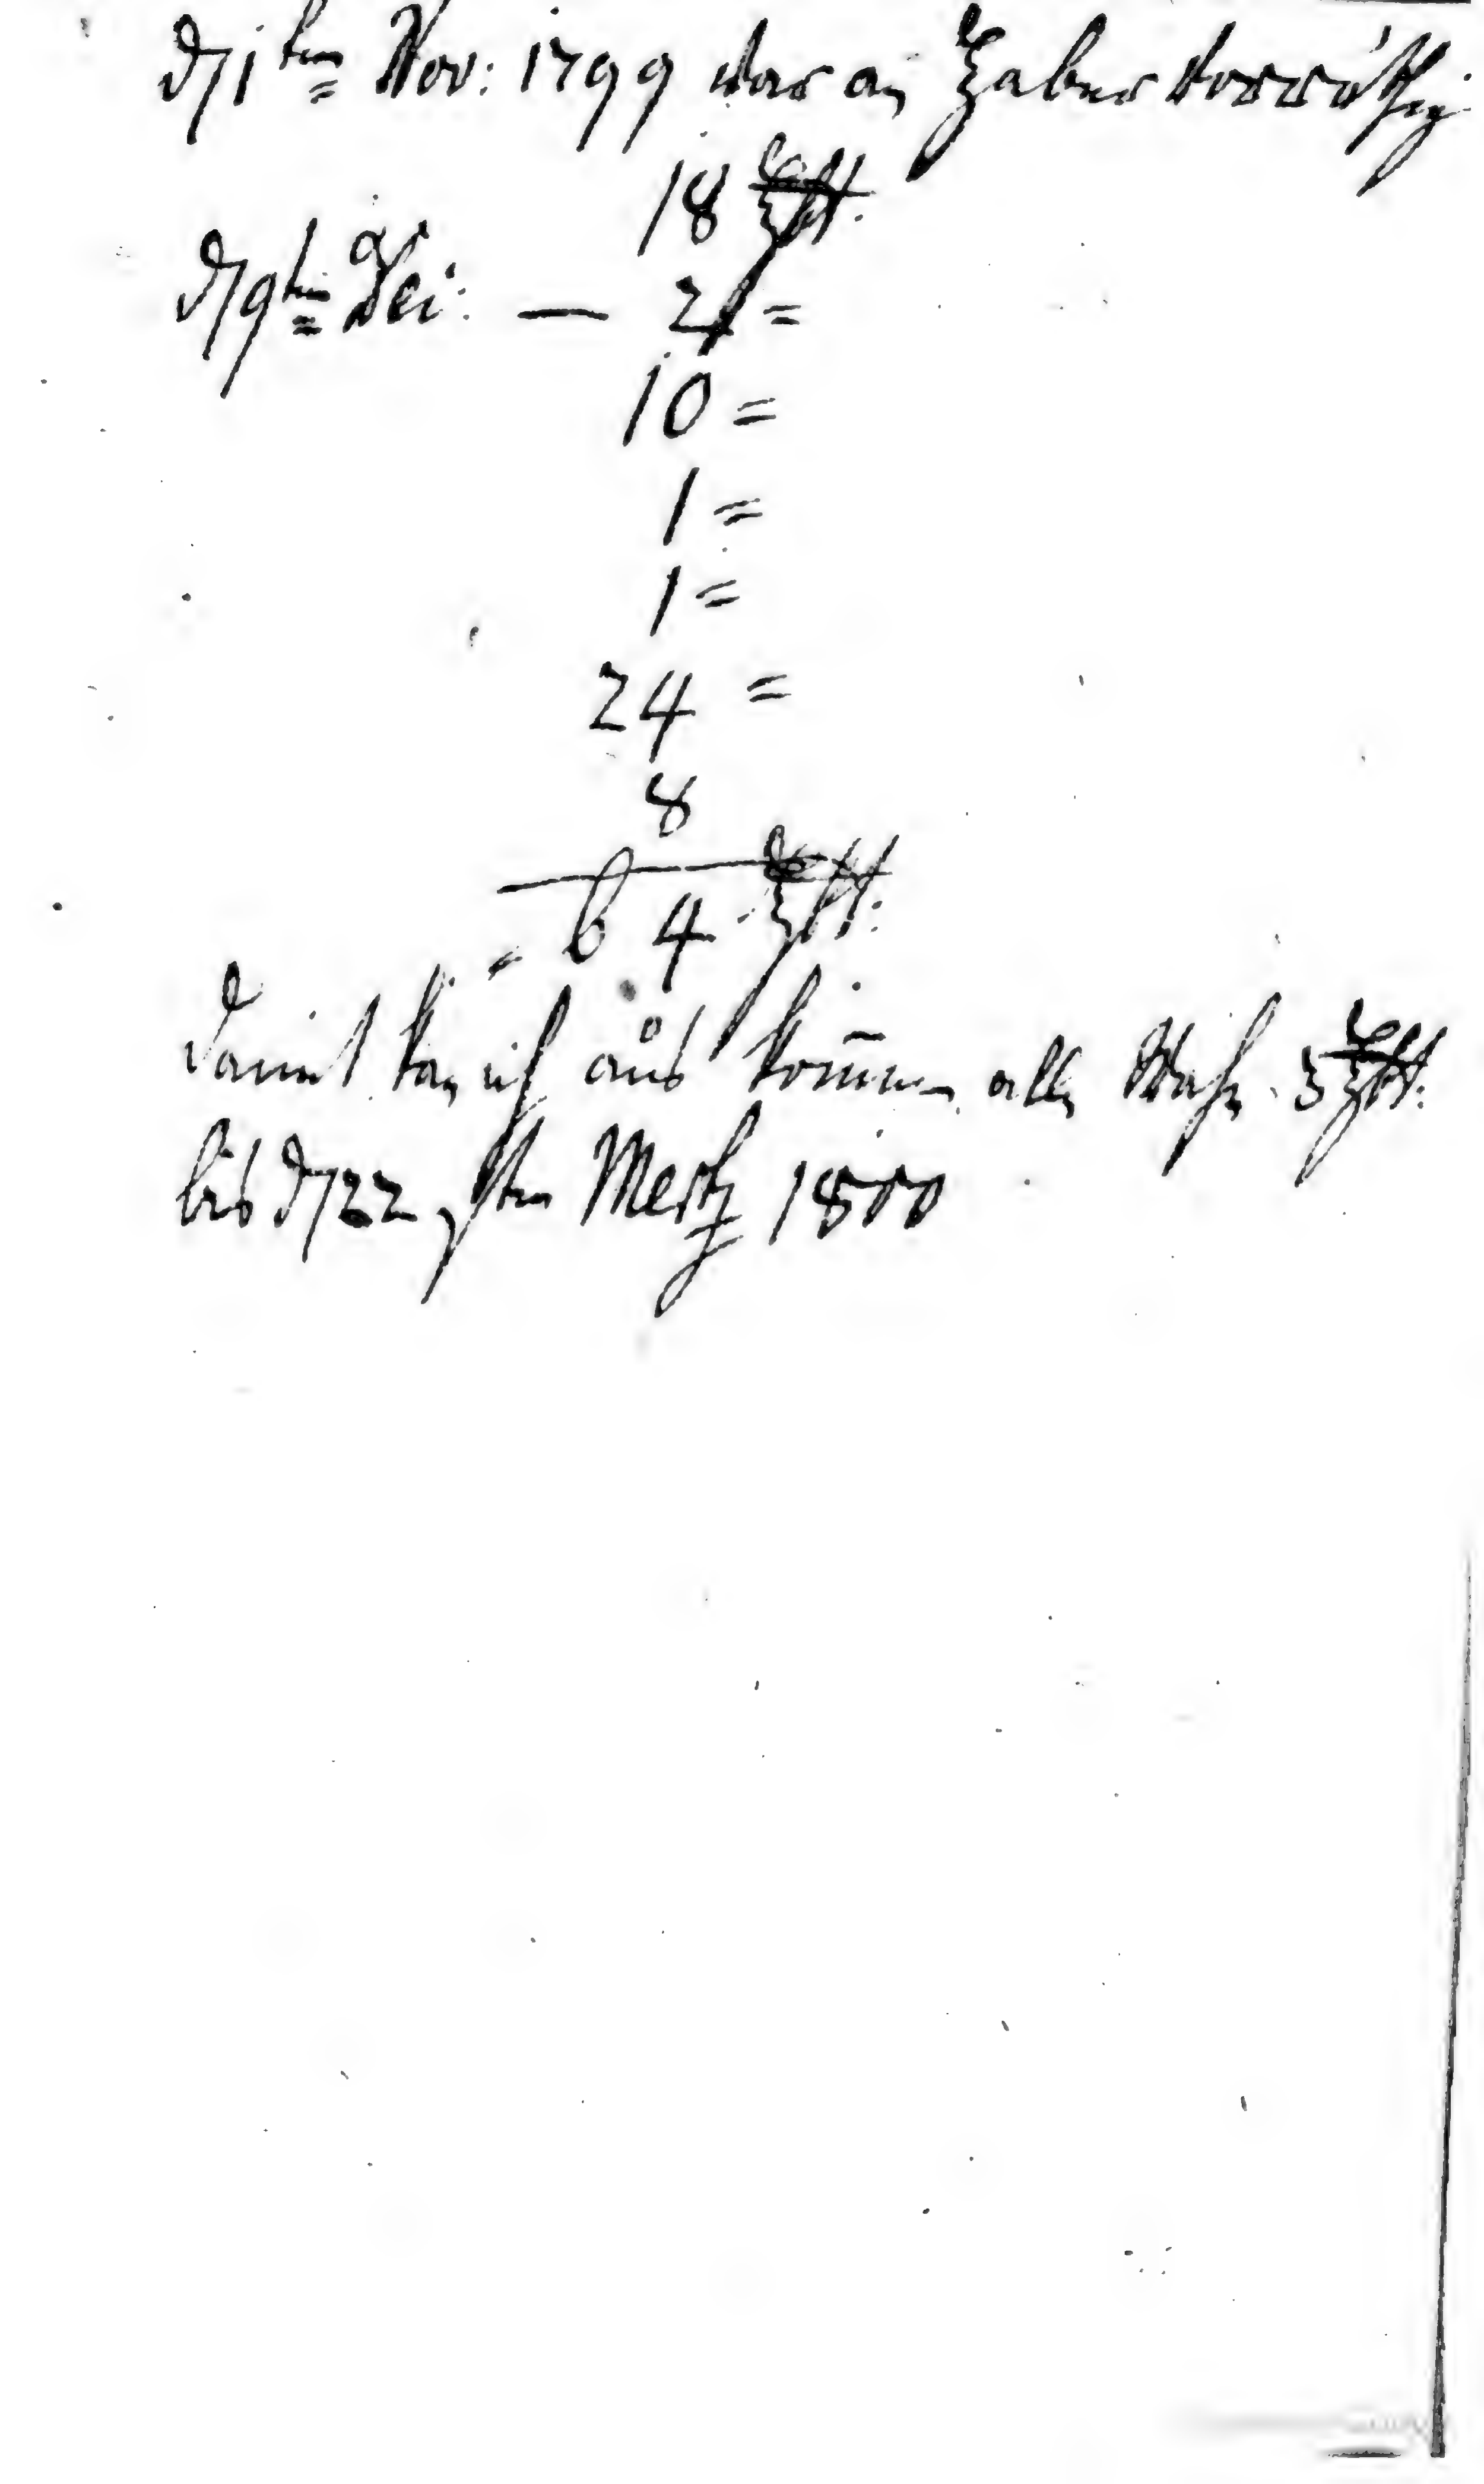 d 1ten Nov: 1799 war an Haber vorräthig
18 Hſt:
d 9ten Dei: — 2 =
10 =
1 =
1 =
24 =
8
64 Hſt:
Damit kan ich aus kom̅en alle Woche 3 Hſt:
bis d 22 sten Mertz 1800